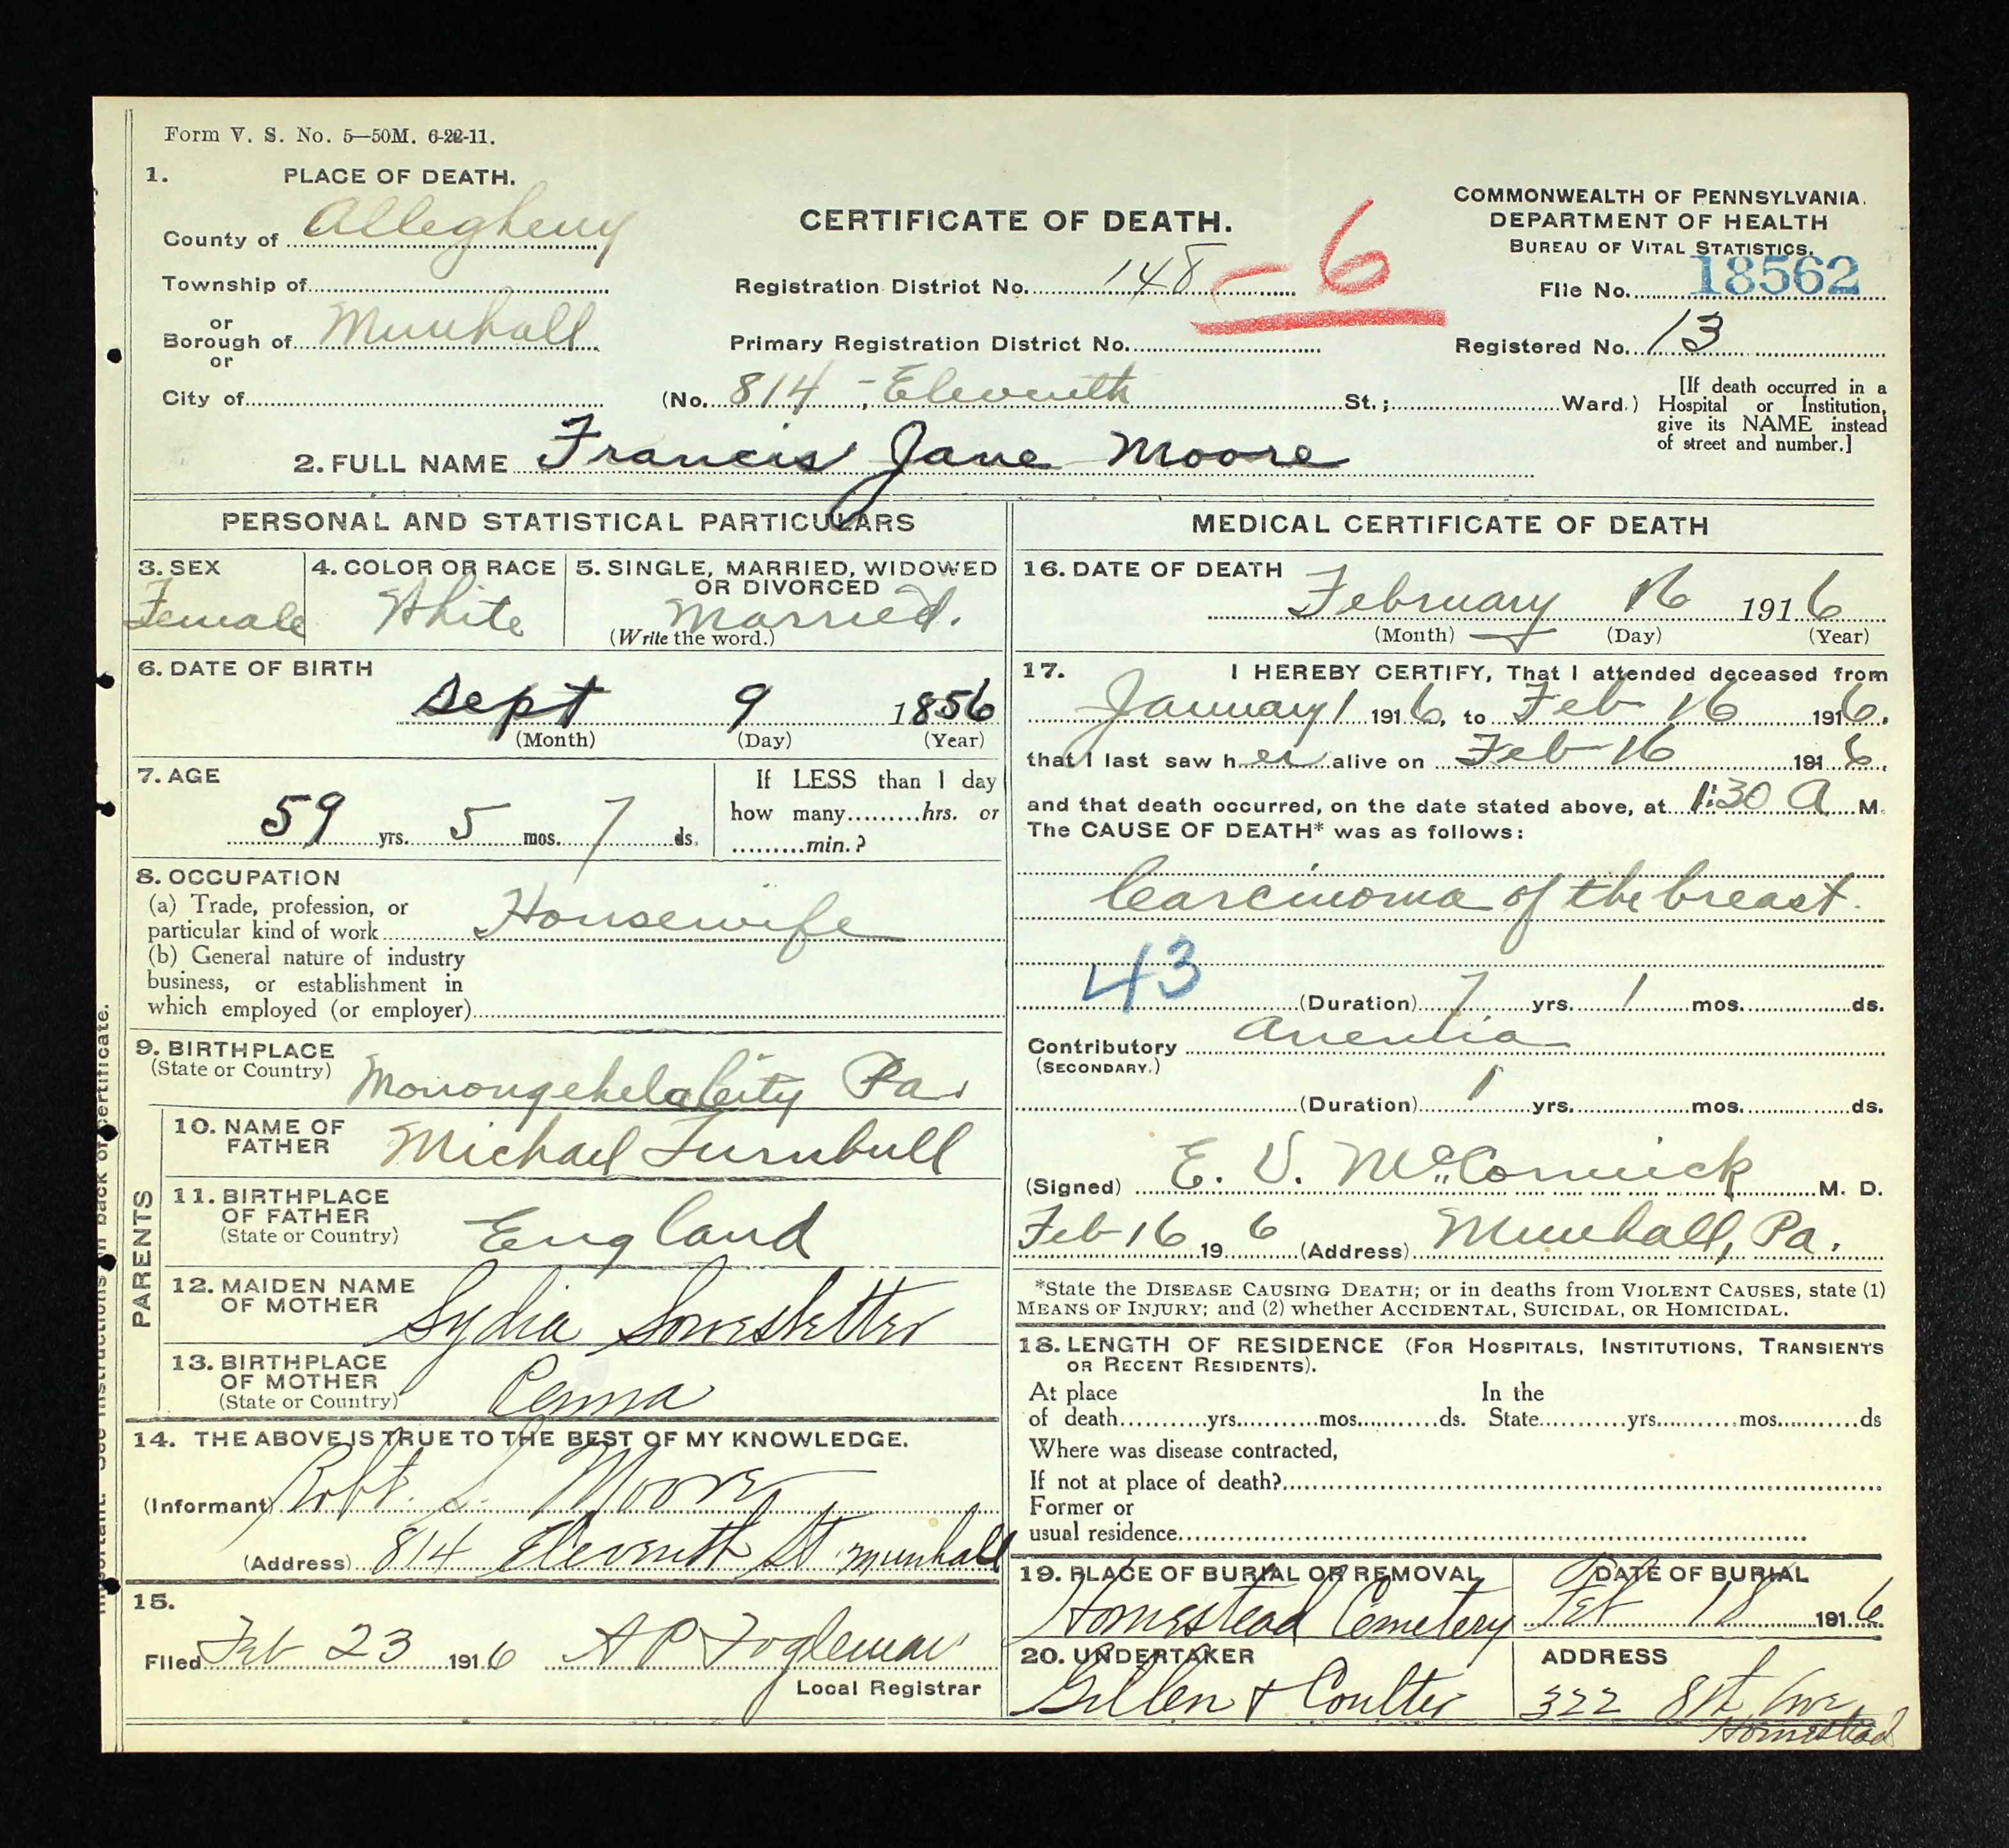 Form V. S. No. 5—50M. 6-22-11.
1. PLACE OF DEATH.
County of Allegheny
Township of
or
Borough of Munhall
or
City of
CERTIFICATE OF DEATH.
Registration District No. 148 -6
Primary Registration District No.
(No. 814 - Eleventh St.; Ward.)
COMMONWEALTH OF PENNSYLVANIA.
DEPARTMENT OF HEALTH
BUREAU OF VITAL STATISTICS.
File No. 18562
Registered No. 13
[If death occurred in a
Hospital or Institution,
give its NAME instead
of street and number.]
2. FULL NAME Francis Jane Moore
PERSONAL AND STATISTICAL PARTICULARS
3. SEX
Female
4. COLOR OR RACE
White
5. SINGLE, MARRIED, WIDOWED
OR DIVORCED
Married.
(Write the word.)
6. DATE OF BIRTH
Sept 9 1856
(Month) (Day) (Year)
7. AGE
59 yrs. 5 mos. 7 ds.
If LESS than 1 day
how many hrs. or
min.?
8. OCCUPATION
(a) Trade, profession, or
particular kind of work Housewife
(b) General nature of industry
business, or establishment in
which employed (or employer)
9. BIRTHPLACE
(State or Country) Monongehela City Pa.
PARENTS
10. NAME OF
FATHER Michael Turnbull
11. BIRTHPLACE
OF FATHER
(State or Country) England
12. MAIDEN NAME
OF MOTHER Lydia
13. BIRTHPLACE
OF MOTHER
(State or Country) Penna
14. THE ABOVE IS TRUE TO THE BEST OF MY KNOWLEDGE.
(Informant) Robt. S. Moore
(Address) 814 Eleventh St Munhall
15.
Filed Feb 23 1916 A P Fogleman
Local Registrar
MEDICAL CERTIFICATE OF DEATH
16. DATE OF DEATH
February 16 1916
(Month) (Day) (Year)
17. I HEREBY CERTIFY, That I attended deceased from
January 1 1916, to Feb 16 1916.
that I last saw her alive on Feb 16 1916.
and that death occurred, on the date stated above, at 1:30 A M.
The CAUSE OF DEATH* was as follows:
Carcinoma of the breast.
43 (Duration) 7 yrs. 1 mos. ds.
Contributory Anemia
(SECONDARY.)
(Duration) 1 yrs. mos. ds.
(Signed) E. V. McCormick M. D.
Feb 16 19 6 (Address) Munhall, Pa.
*State the DISEASE CAUSING DEATH; or in deaths from VIOLENT CAUSES, state (1)
MEANS OF INJURY; and (2) whether ACCIDENTAL, SUICIDAL, OR HOMICIDAL.
18. LENGTH OF RESIDENCE (FOR HOSPITALS, INSTITUTIONS, TRANSIENTS
OR RECENT RESIDENTS).
At place In the
of death yrs. mos. ds. State yrs. mos. ds
Where was disease contracted,
If not at place of death?
Former or
usual residence
19. PLACE OF BURIAL OR REMOVAL
Homestead Cemetery
DATE OF BURIAL
Feb 18 1916
20. UNDERTAKER
Gillen & Coulter
ADDRESS
322 8th Ave
Homestead
See instructions on back of certificate.